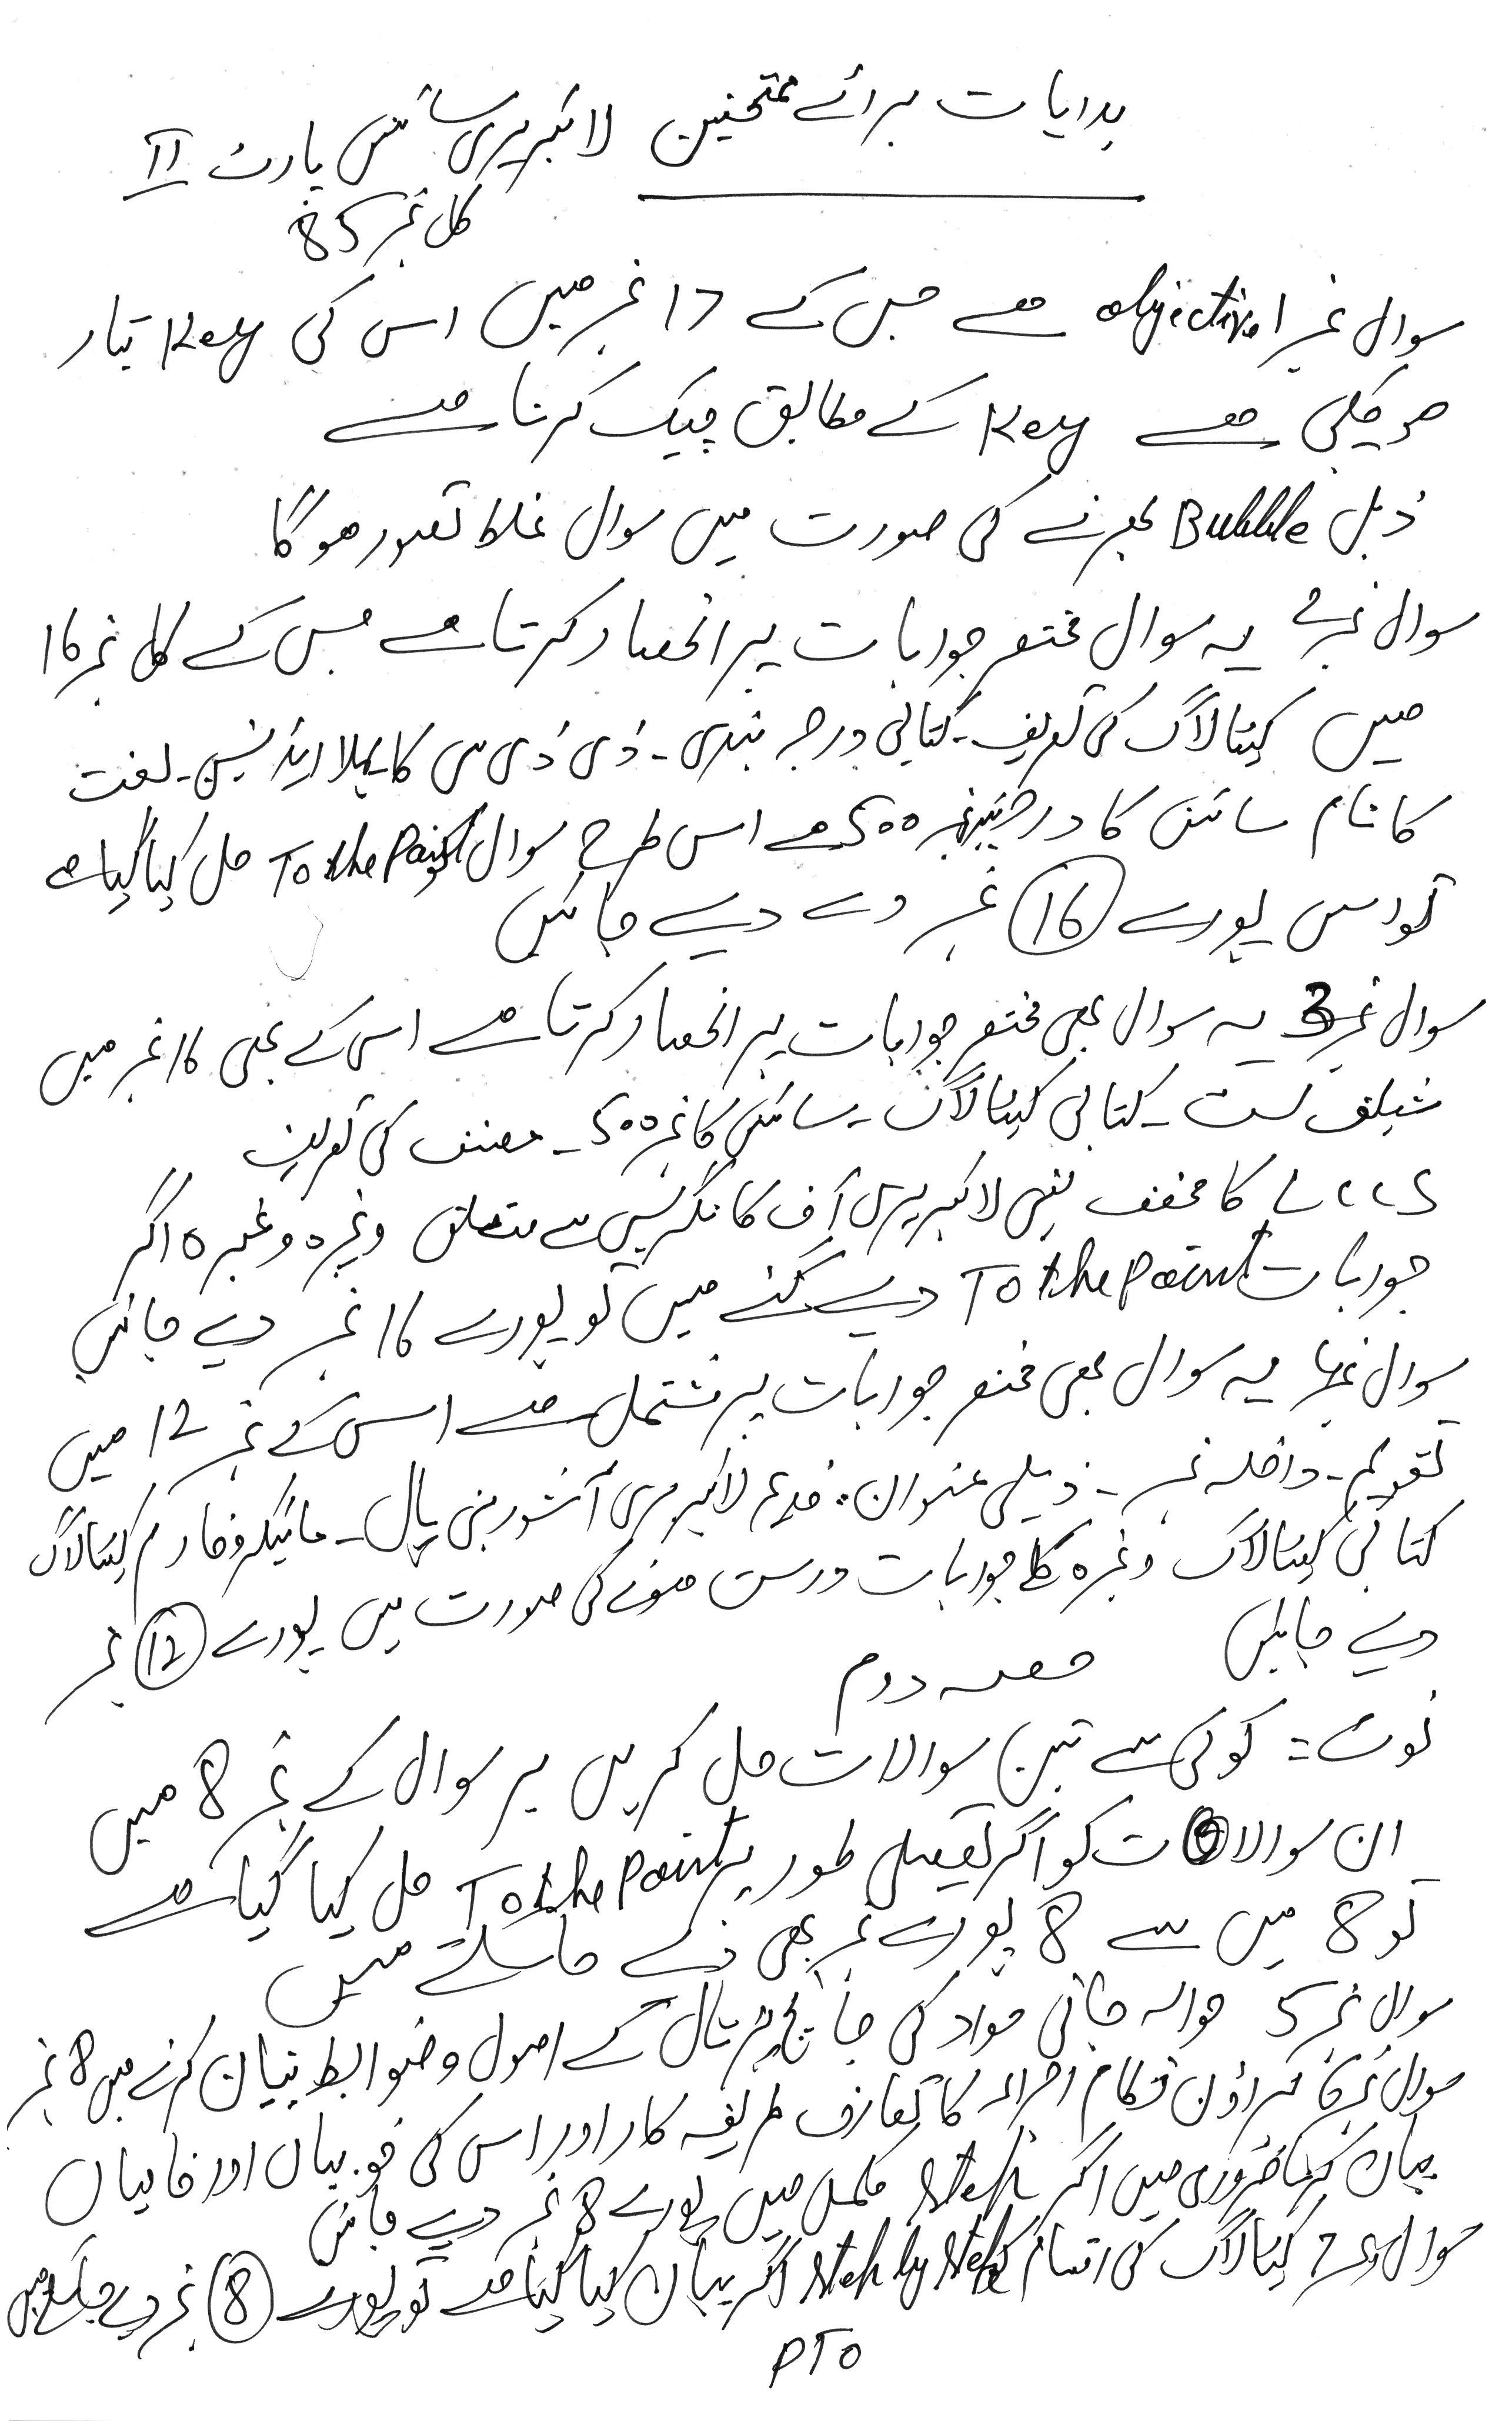 ہدایات برائے ممتحنین لائبریری سائنس پارٹ II
کل نمبر 85
سوال نمبر 1 objective ہے جس کے 17 نمبر ہیں اس کی Key تیار
ہو چکی ہے Key کے مطابق چیک کرنا ہے
ڈبل Bubble بھرنے کی صورت میں سوال غلط تصور ہو گا
سوال نمبر 2 یہ سوال مختصر جوابات پر انحصار کرتا ہے جس کے کل نمبر 16
ہیں کیٹالاگ کی تعریف۔ کتابی درجہ بندی۔ ڈی ڈی سی کا پہلا ایڈیشن۔ لغت
کا نام سائنس کا درجہ بندی نمبر 500 ہے اس طرح سوال To the Point حل کیا گیا ہے
تو اس پورے 16 نمبر دے دیے جائیں
سوال نمبر 3 یہ سوال بھی مختصر جوابات پر انحصار کرتا ہے اس کے بھی 16 نمبر ہیں
شیلف لسٹ۔ کتابی کیٹالاگ۔ سائنس کا نمبر 500۔ مصنف کی تعریف
کا مخفف یعنی لائبریری آف کانگریس سے متعلق وغیرہ وغیرہ اگر
جوابات To the Point دیے گئے ہیں تو پورے 16 نمبر دیے جائیں
سوال نمبر 4 یہ سوال بھی مختصر جوابات پر مشتمل ہے اس کے نمبر 12 ہیں
تقویم۔ داخلہ نمبر۔ ذیلی عنوان۔ قدیم لائبریری آشور بنی پال۔ مائیکروفارم کیٹالاگ
کتابی کیٹالاگ وغیرہ کے جوابات درست ہونے کی صورت میں پورے 12 نمبر
دیے جائیں
حصہ دوم
نوٹ:= کوئی سے تین سوالات حل کریں ہر سوال کے نمبر 8 ہیں
ان سوالات کو اگر تفصیلی طور پر To the Point حل کیا گیا ہے
تو 8 میں سے 8 پورے نمبر بھی دئے جا سکتے ہیں
سوال نمبر 5 حوالہ جاتی مواد کی جانچ پڑتال کے اصول و ضوابط بیان کرنے میں 8 نمبر
سوال نمبر 6 براؤن نظام اجراء کا تعارف طریقہ کار اور اس کی خوبیاں اور خامیاں
بیان کرنا ضروری ہیں اگر Step مکمل ہیں پورے 8 نمبر دیے جائیں
سوال نمبر 7 کیٹالاگ کی اقسام کو Step by Step اگر بیان کیا گیا ہے تو پورے 8 نمبر دیے جا سکتے ہیں
PTO